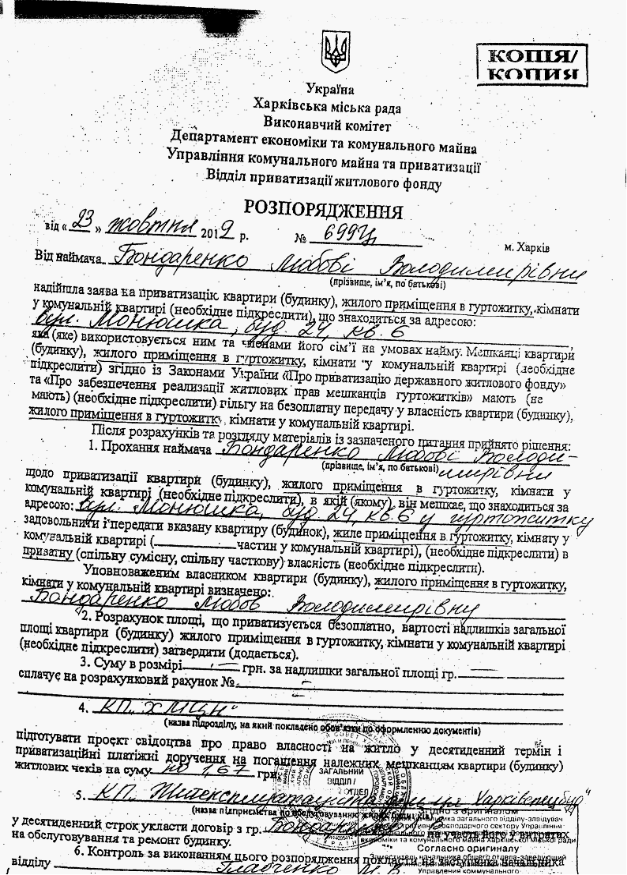 КОПІЯ/
КОПИЯ
Україна
Харківська міська рада
Виконавчий комітет
Департамент економіки та комунального майна
Управління комунального майна та приватизації
Відділ приватизації житлового фонду
РОЗПОРЯДЖЕННЯ
від « 23 » жовтня 2019 р. № 699Ц м. Харків
Від наймача Бондаренко Любові Володимирівни
(прізвище, ім'я, по батькові)
надійшла заява на приватизацію квартири (будинку), жилого приміщення в гуртожитку, кімнати
у комунальній квартирі (необхідне підкреслити), що знаходиться за адресою:
вул. Монюшка, буд 24, кв. 6
яка (яке) використовується ним та членами його сім'ї на умовах найму. Мешканці квартири
(будинку), жилого приміщення в гуртожитку, кімнати у комунальній квартирі (необхідне
підкреслити) згідно із Законами України «Про приватизацію державного житлового фонду»
та «Про забезпечення реалізації житлових прав мешканців гуртожитків» мають (не
мають) (необхідне підкреслити) пільгу на безоплатну передачу у власність квартири (будинку),
жилого приміщення в гуртожитку, кімнати у комунальній квартирі.
Після розрахунків та розгляду матеріалів із зазначеного питання прийнято рішення:
1. Прохання наймача Бондаренко Любові Володи-
(прізвище, ім'я, по батькові) мирівни
щодо приватизації квартири (будинку), жилого приміщення в гуртожитку, кімнати у
комунальній квартирі (необхідне підкреслити), в якій (якому) він мешкає, що знаходиться за
адресою: вул. Монюшка, буд 24, кв. 6 у гуртожитку
задовольнити і передати вказану квартиру (будинок), жиле приміщення в гуртожитку, кімнату у
комунальній квартирі (________ частин у комунальній квартирі), (необхідне підкреслити) в
приватну (спільну сумісну, спільну часткову) власність (необхідне підкреслити).
Уповноваженим власником квартири (будинку), жилого приміщення в гуртожитку,
кімнати у комунальній квартирі визначено:
Бондаренко Любов Володимирівну
2. Розрахунок площі, що приватизується безоплатно, вартості надлишків загальної
площі квартири (будинку) жилого приміщення в гуртожитку, кімнати у комунальній квартирі
(необхідне підкреслити) затвердити (додається).
3. Суму в розмірі ____ грн. за надлишки загальної площі гр. ________
сплачує на розрахунковий рахунок № ________
4. КП „ХМЦН"
(назва підрозділу, на який покладено обов'язки по оформленню документів)
підготувати проєкт свідоцтва про право власності на житло у десятиденний термін і
приватизаційні платіжні доручення на погашення належних мешканцям квартири (будинку)
житлових чеків на суму 167 грн.
ЗАГАЛЬНИЙ
ВІДДІЛ
5. КП. Харківспецбуд"
(назва підприємства по обслуговуванню жилих будинків)
у десятиденний строк укласти договір з гр. Бондаренко на участь його у витратах
на обслуговування та ремонт будинку.
6. Контроль за виконанням цього розпорядження покласти на заступника начальника
відділу
Згідно з оригіналом
Согласно оригиналу